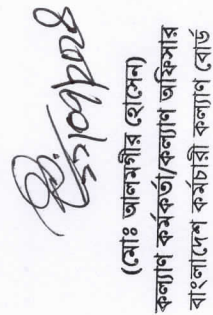 (মোঃ আলমগীর হোসেন)
কল্যাণ কর্মকর্তা/কল্যাণ অফিসার
বাংলাদেশ কর্মচারী কল্যাণ বোর্ড